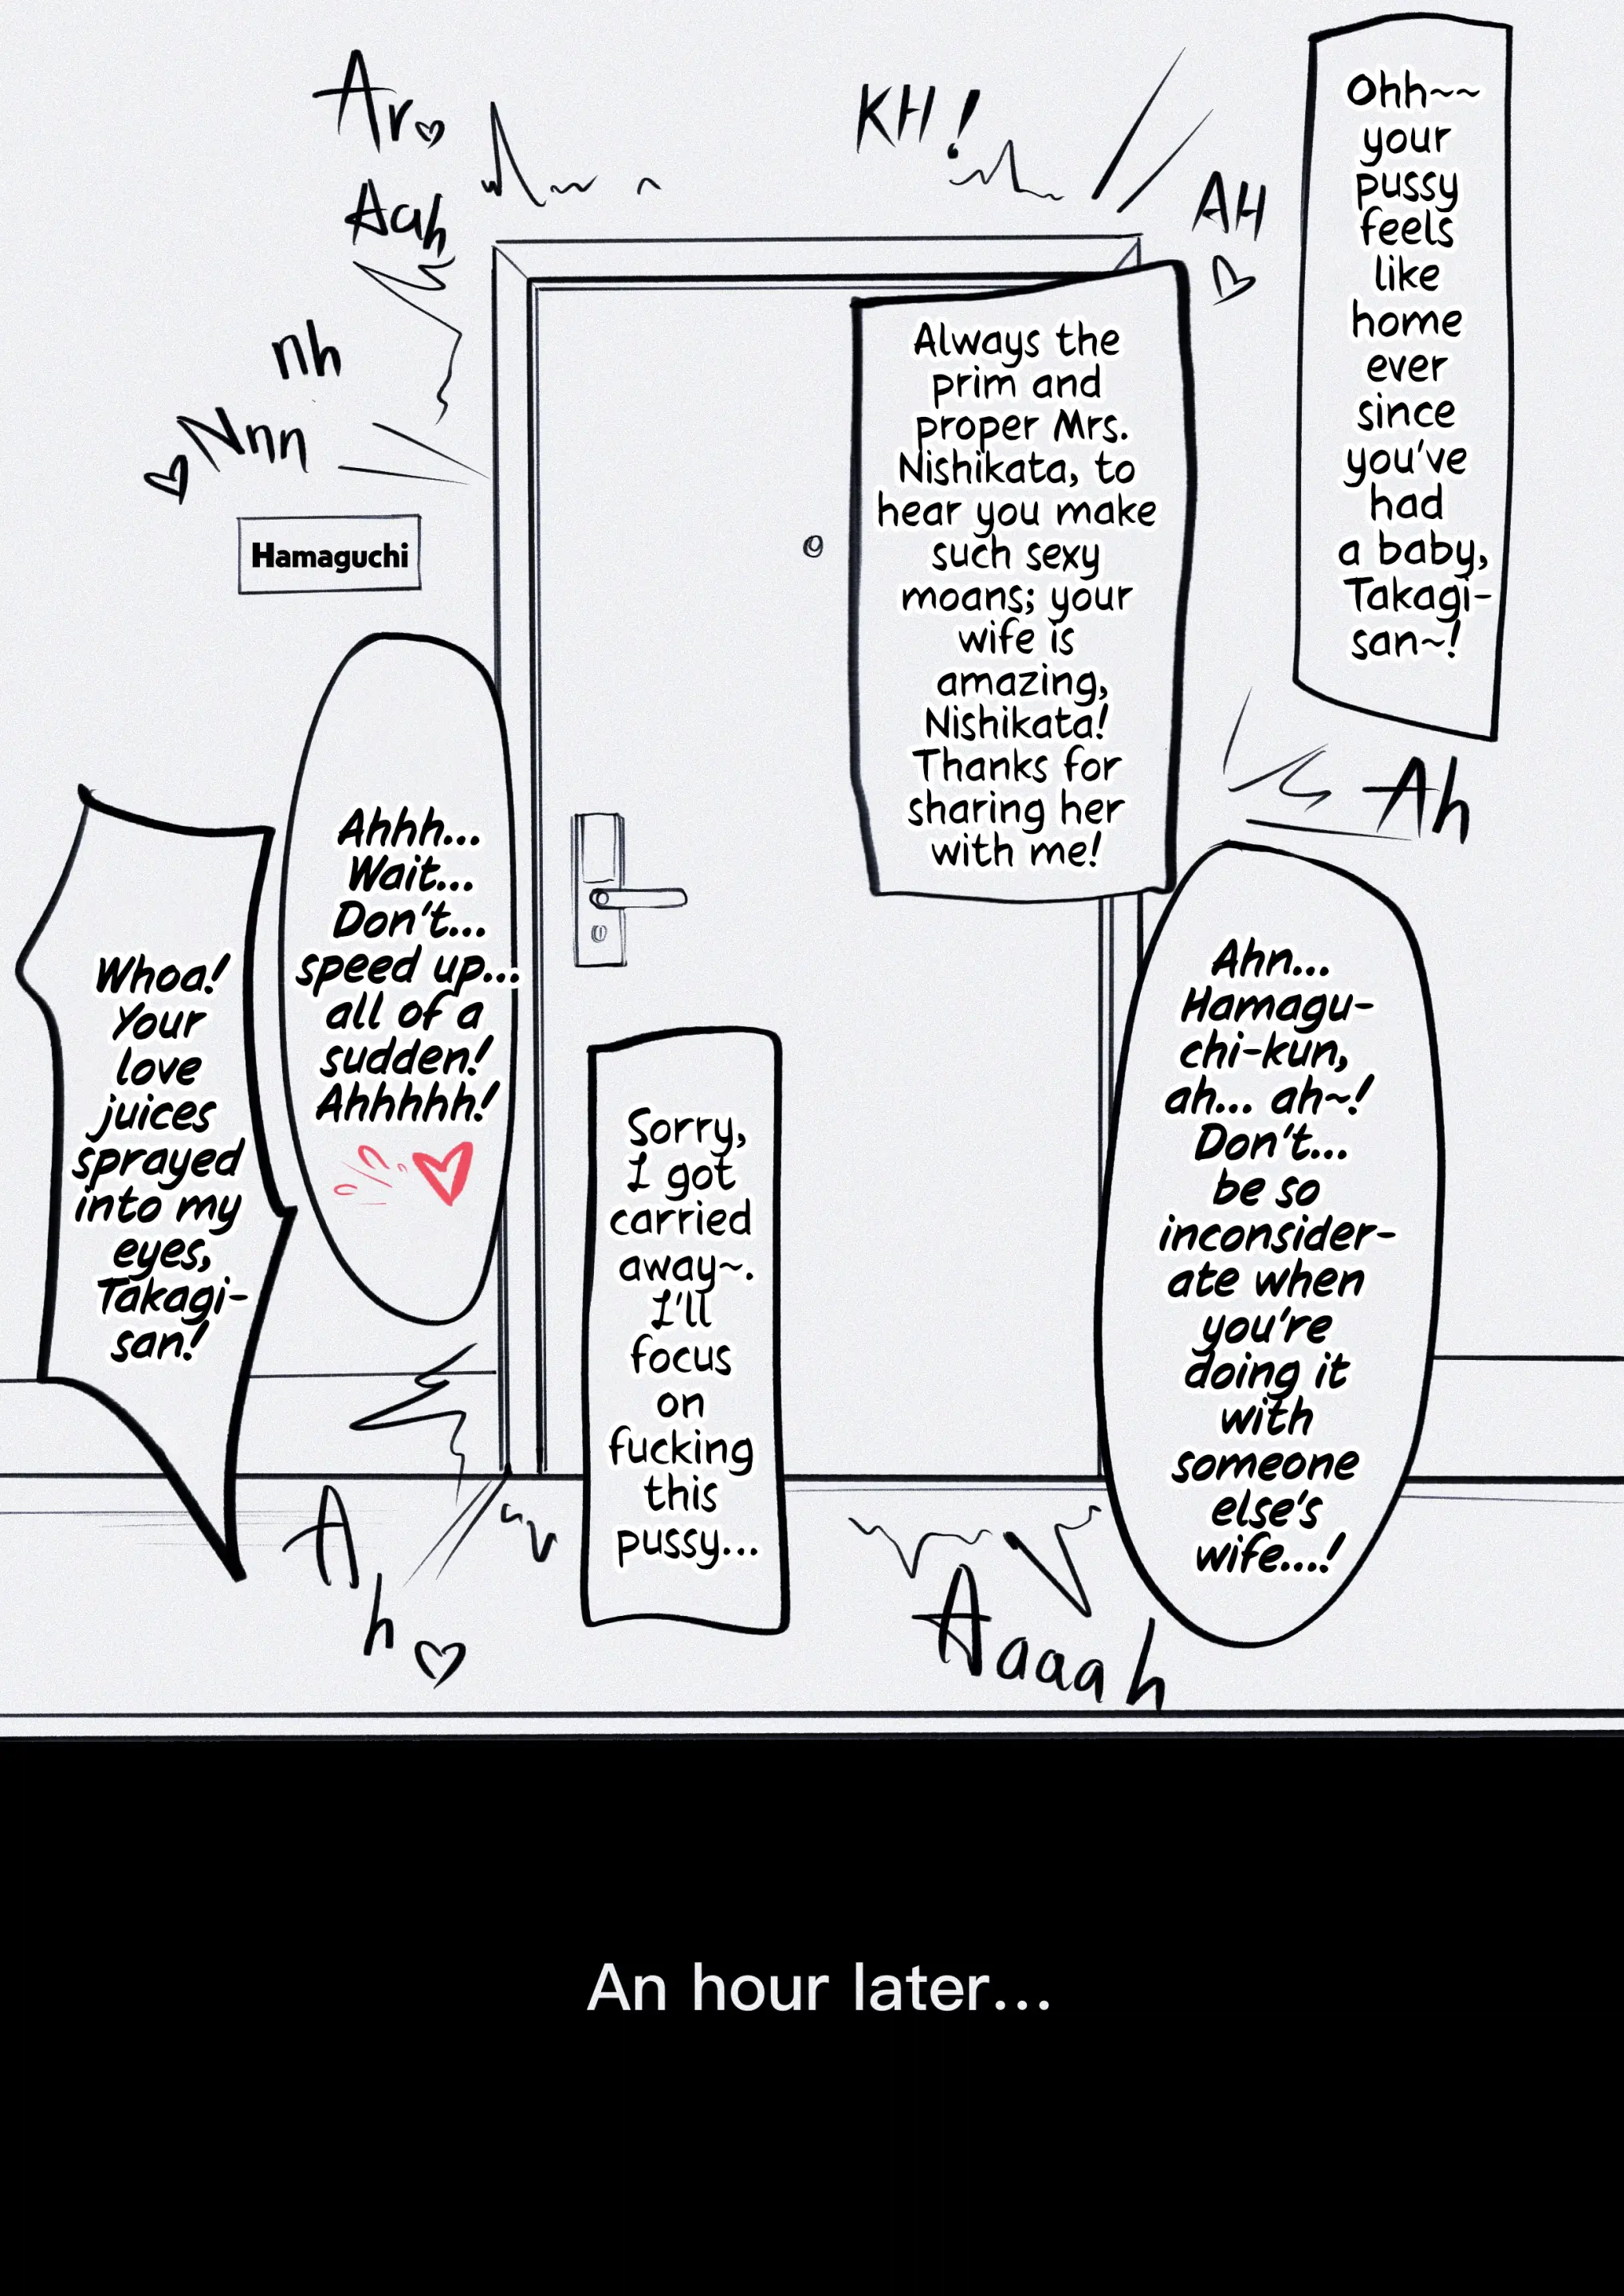 Ohh~~
your
pussy
feels
like
home
ever
since
you've
had
a baby,
Takagi-
san~!
KH!
AH
Always the
prim and
proper Mrs.
Nishikata, to
hear you make
such sexy
moans; your
wife is
amazing,
Nishikata!
Thanks for
sharing her
with me!
Ar
Aah
nh
Nnn
Hamaguchi
Ah
Ahn...
Hamagu-
chi-kun,
ah... ah~!
Don't...
be so
inconsider-
ate when
you're
doing it
with
someone
else's
wife...!
Sorry,
I got
carried
away~.
I'll
focus
on
fucking
this
pussy...
Ahhh...
Wait...
Don't...
speed up...
all of a
sudden!
Ahhhhh!
Whoa!
Your
love
juices
sprayed
into my
eyes,
Takagi-
san!
Aaaah
Ah
An hour later...